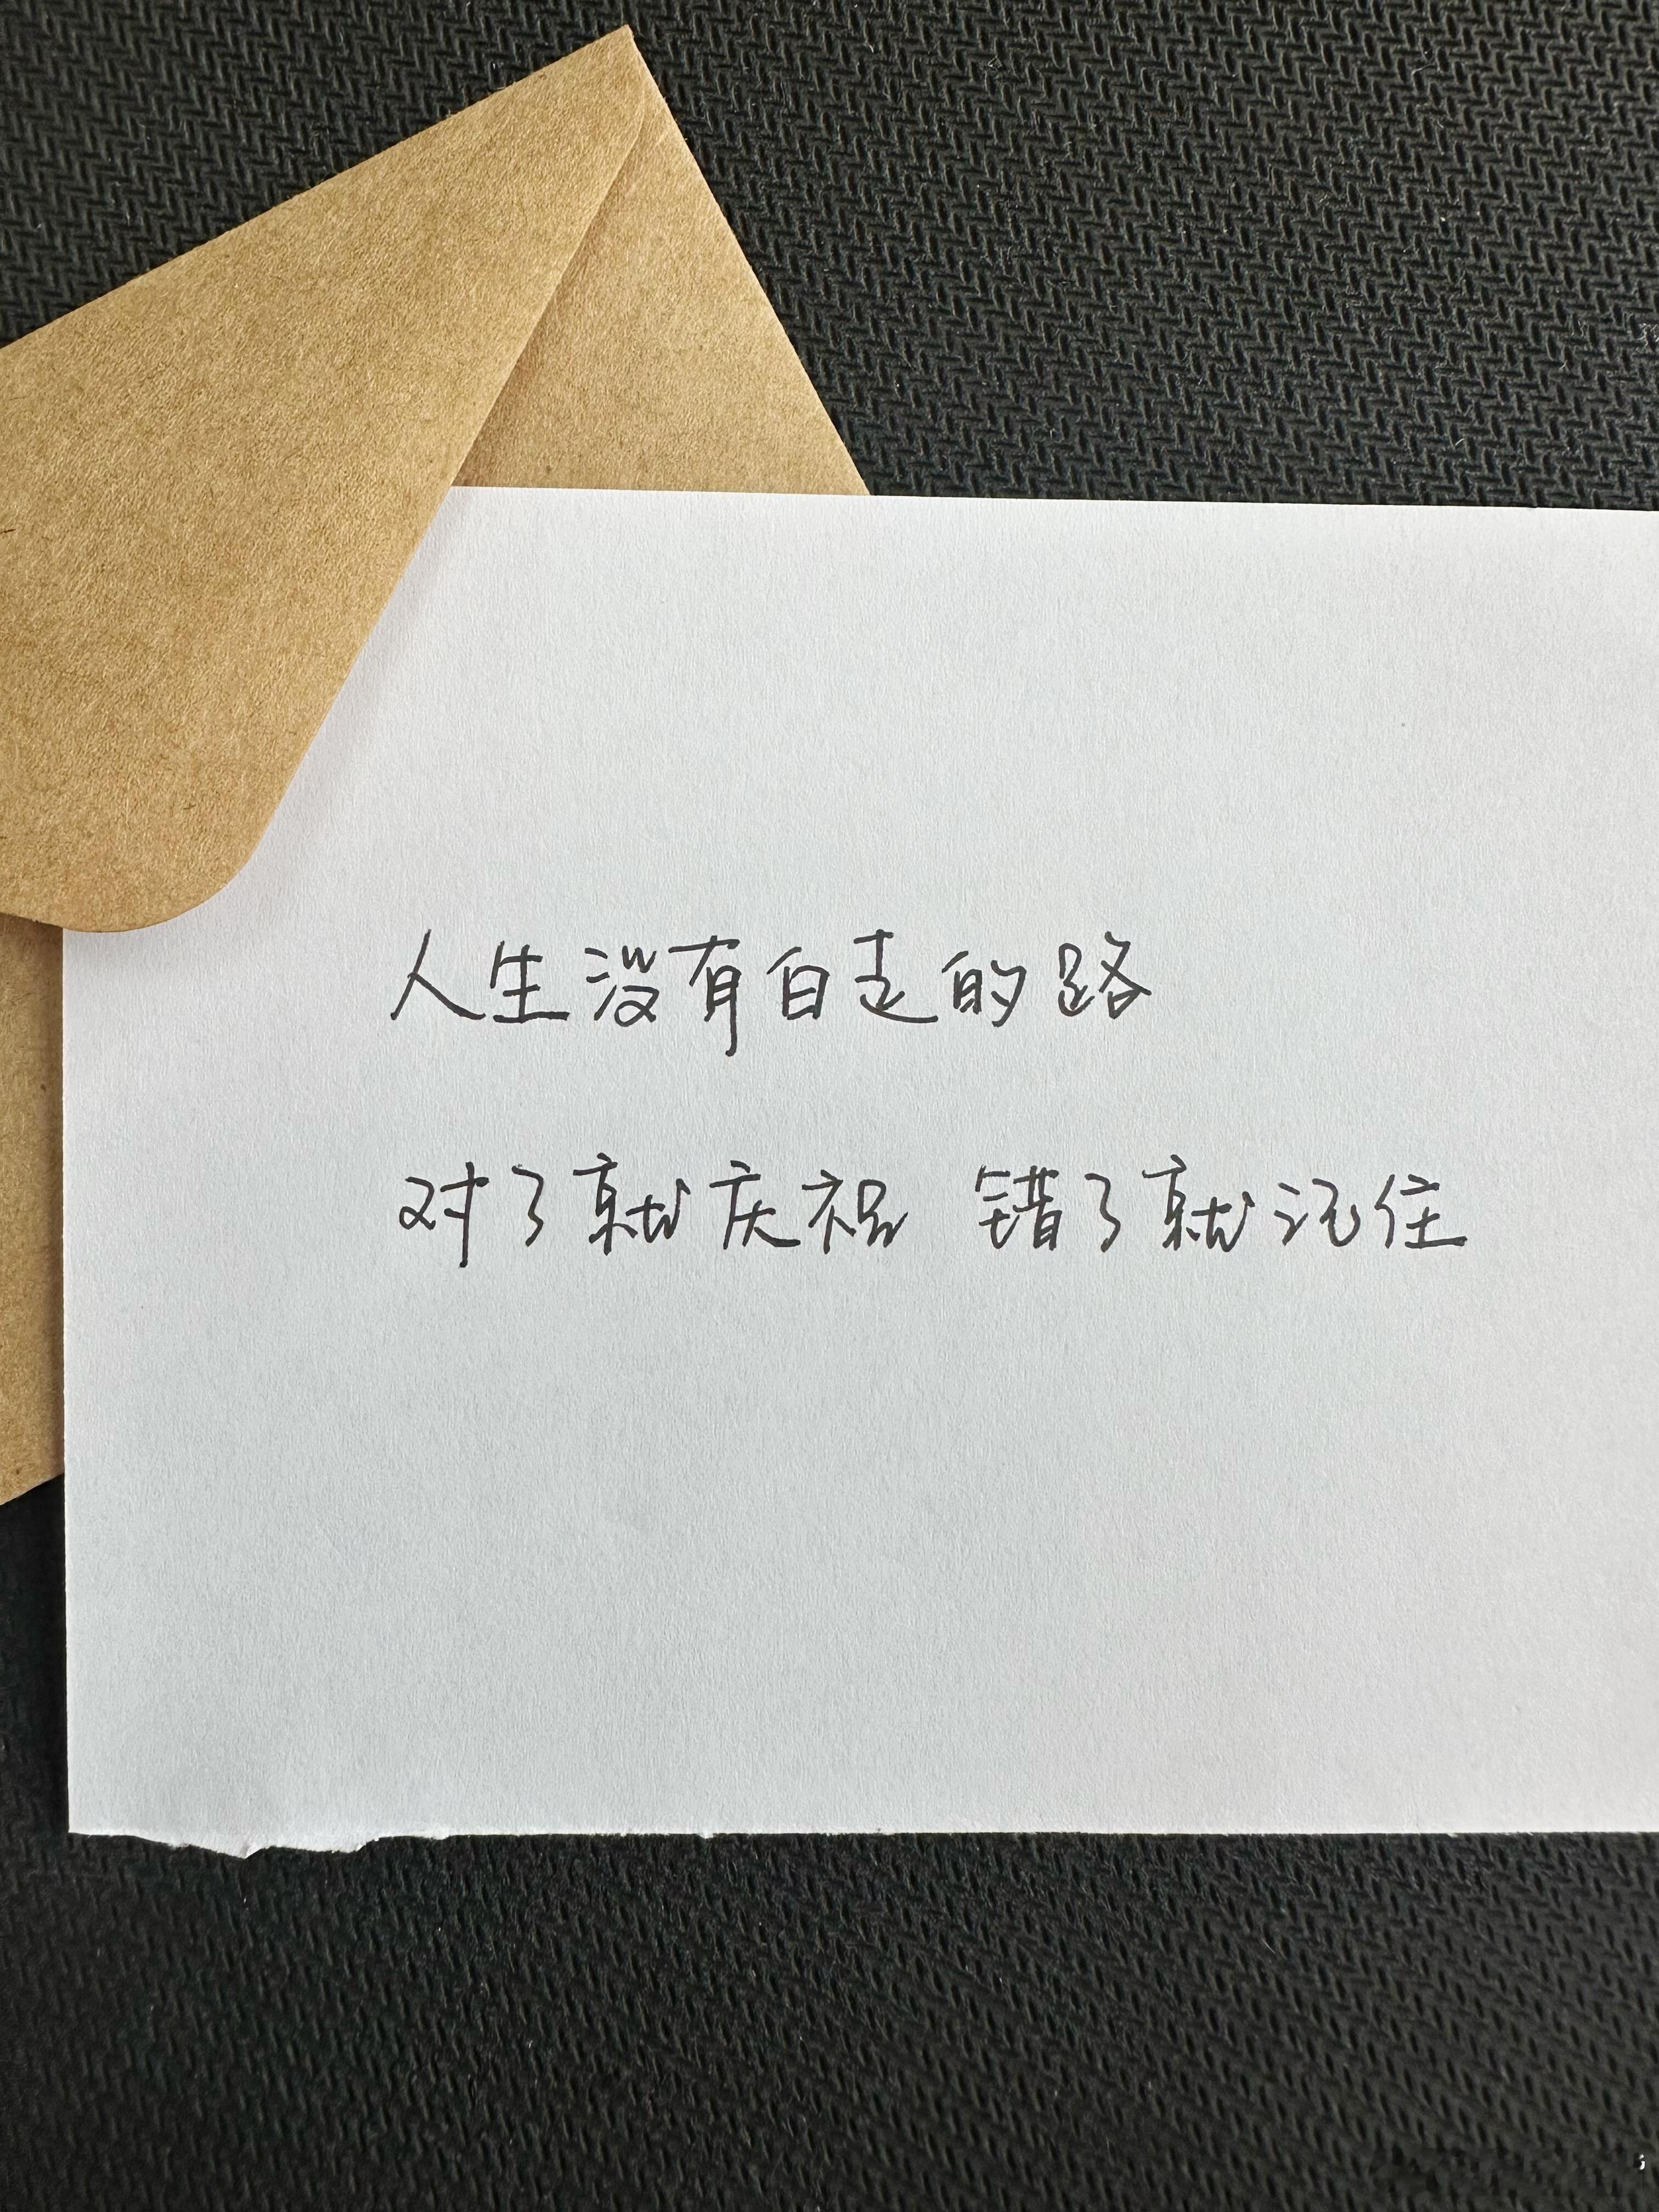 人生没有白走的路
对了就庆祝 错了就记住